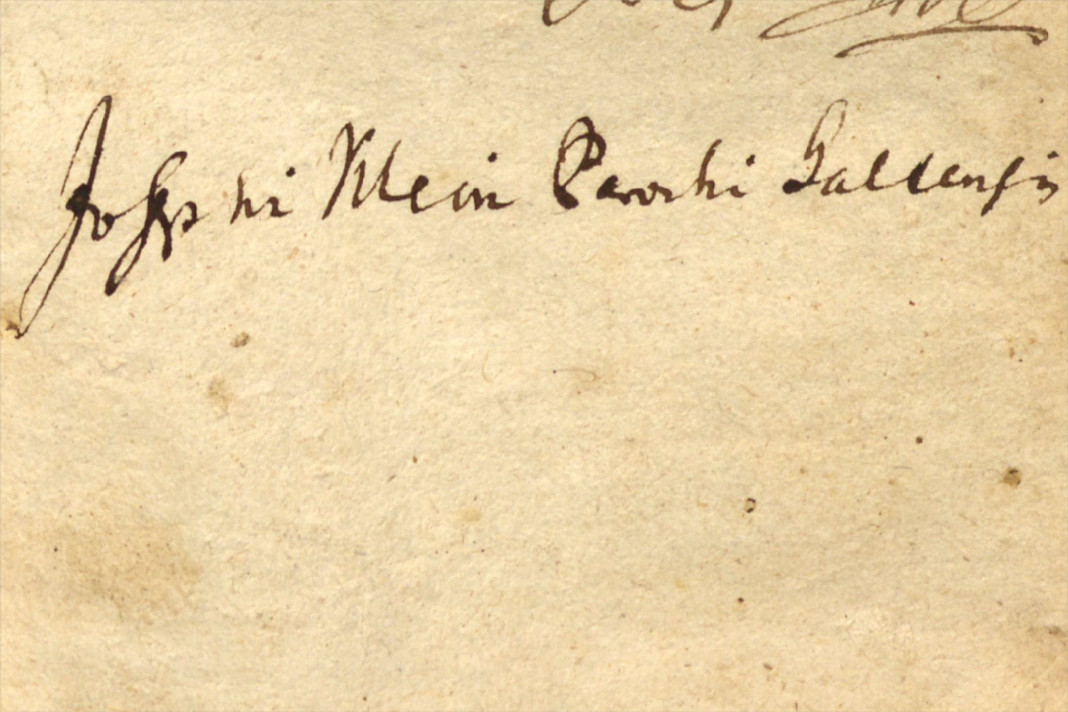 Josephi Klein Parochi Galtensis